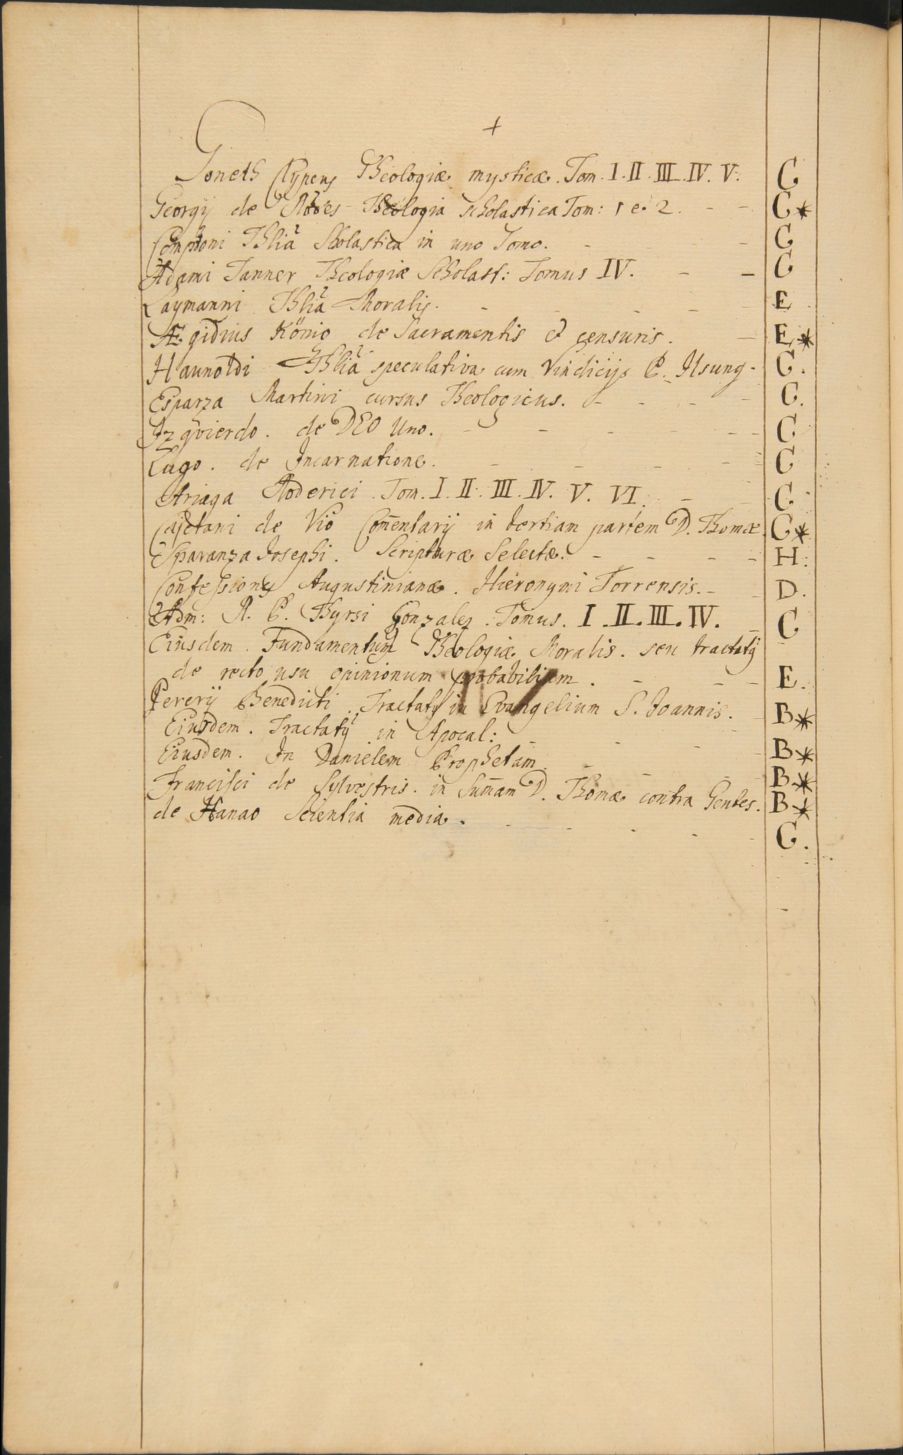 +
Goneth Clypeus Theologiæ mysticæ. Tom. I. II. III. IV. V. G
Georgij de Rodes Theologia Scholastica Tom: 1 et 2. - - G*
Comptoni Thlia Scolastica in uno Tomo. - - G
Adami Tanner Theologiæ Scholast: Tomus IV. - - G
Laymanni Thlia Moralis. - - - E
Ægidius Konio de Sacramentis et censuris. - E*
Haunoldi Thlia speculativa cum Vindicijs P. Ilsung. G.
Esparza Martini cursus Theologicus. - - - - G.
Izqvierdo. de DEO Uno. - - - - - G
Lugo. de Incarnatione. - - - - - G
Ariaga Roderici Tom. I. II. III. IV. V. VI. - G
Cajetani de Vio Comentarij in tertiam partem D. Thomæ. G*
Sparanza Josephi. Scripturæ Selectæ. - - - - H:
Confessiones Augustinianæ. Hieronymi Torrensis. - - D.
Adm: R. P. Thyrsi Gonzales. Tomus. I. II. III. IV. - G
Eiusdem. Fundamentum Theologiæ Moralis. seu tractatus
de recto usu opinionum probabilium. - - - E.
Pererij Benedicti. Tractatus in Evangelium S. Joannis. B*
Eiusdem. Tractatus in Apocal: - - - - B*
Eiusdem. In Danielem Prophetam - - - - B*
Francisci de Sylvestris. in Sumam D. Thomæ contra Gentes. B*
de Hanao Scientia media. - - - - G.